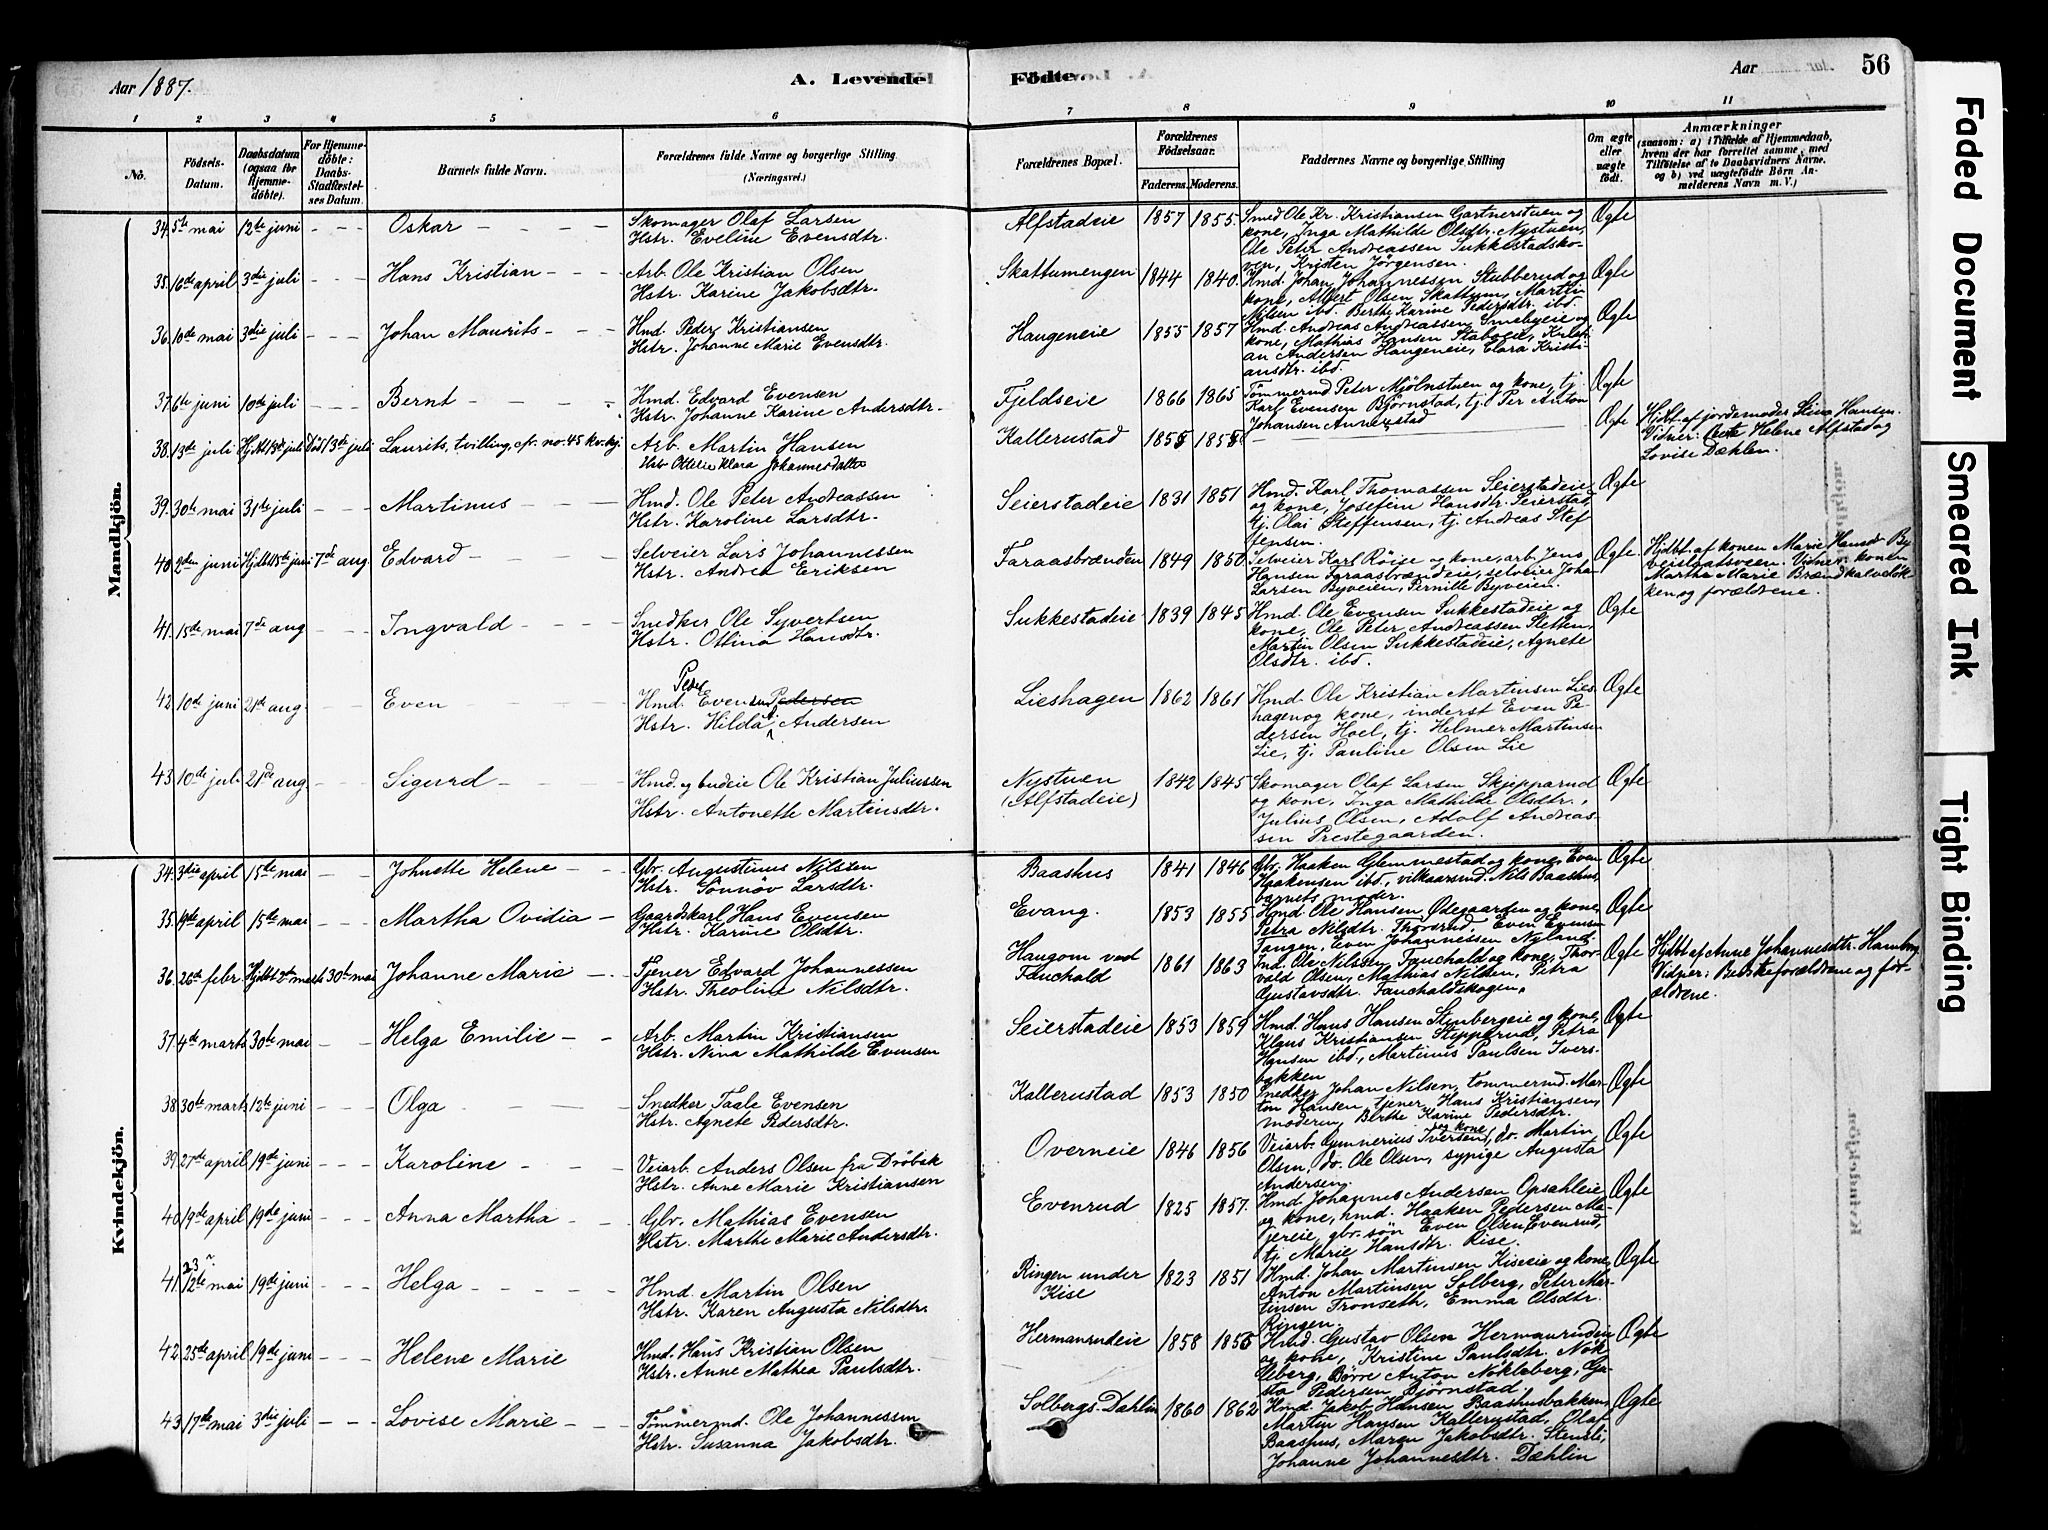 Aar 1887.
A. Levende
Födte.
Aar
56
1 2 3 4 5 6 7 8 9 10 11
No.
Födsels-Datum.
Daabsdatum (ogsaa for Hjemmedöbte).
For Hjemmedöbte: Daabs-Stadfæstelses Datum.
Barnets fulde Navn.
Forældrenes fulde Navne og borgerlige Stilling
(Næringsvei.)
Forældrenes Bopæl.
Forældrenes Födselsaar.
Faderens. Moderens.
Faddernes Navne og borgerlige Stilling
Om ægte eller uægte födt.
Anmærkninger
(saasom: a) i Tilfælde af Hjemmedaab, hvem der har forrettet samme, med Tilföielse af to Daabsvidners Navne, og b) ved uægtefödte Börn Anmelderens Navn m. V.)
Mandkjön.
34. 5te mai 12te juni Oskar Skomager Olaf Larsen
Hstr. Eveline Evensdtr.
Alfstadeie 1857 1855 Smed Ole Kr. Kristiansen Gartnerstuen og
kone, Inga Mathilde Olsdtr. Nystuen,
Ole Peter Andreassen Sukkestadsko-
ven, Kristen Jørgensen.
Ægte
35. 16de april 3die juli Hans Kristian Arb. Ole Kristian Olsen
Hstr. Karine Jakobsdtr.
Skattumengen 1844 1840. Hmd. Johan Johannessen Stubberud og
kone, Albert Olsen Skattum, Martin
Nilsen ibd. Berthe Karine Pedersdtr. ibd.
Ægte
36. 10de mai 3die juli Johan Maurits Hmd. Peder Kristiansen
Hstr. Johanne Marie Evensdtr.
Haugeneie 1855 1857 Hmd. Andreas Andreassen Smebyeie og
kone, Mathias Hansen Stabyeie, Kristi-
an Andersen Haugeneie, Clara Kristi-
ansdtr. ibd.
Ægte
37. 6te juni 10de juli Bernt Hmd. Edvard Evensen
Hstr. Johanne Karine Andersdtr.
Fjeldseie 1866 1865 Tömmermd Peter Mjölnstuen og kone, tj.
Karl Evensen Bjørnstad, tj. Per Anton
Johansen Annexstad
Ægte
38. 13de juli Hjdbt 13de juli Död 13de juli Laurits, tvilling, cfr. no. 45 kv.kj. Arb. Martin Hansen
Hstr Ottelie Klara Johannesdatter
Kallerustad 1855 1855 Ægte
Hjdbt. af jordemoder Stina Hansen.
Vidner: Helene Alfstad og
Lovise Dæhlen.
39. 30te mai 31te juli Martinus Hmd. Ole Peter Andreassen
Hstr. Karoline Larsdtr.
Seierstadeie 1831 1851 Hmd. Karl Thomassen Seierstadeie
og kone, Josefine Hansdtr. Seierstad,
tj. Olai Steffensen, tj. Andreas Stef
fensen.
Ægte
40. 2den juni Hjdbt 18de juni 7de aug. Edvard Selveier Lars Johannessen
Hstr. Andrea Eriksen
Faraasbrænden 1849 1850 Selveier Karl Röise og kone, arb. Jens
Hansen Faraasbrændeie, selveier Johan
Larsen Byveien, Pernille Byveien.
Ægte.
Hjdbt. af konen Marie Hansd By-
veislaatsveen. Vidner: konen
Martha Marie Brænd
ken og forældrene.
41. 15de mai 7de aug Ingvald Snedker Ole Syvertsen
Hstr. Ottina Hansdtr.
Sukkestadeie 1839 1845 Hmd. Ole Evensen Sukkestadeie og
kone, Ole Peter Andreassen Sletten,
Martin Olsen Sukkestadeie, Agnete
Olsdtr. ibd.
Ægte
42 10de juni 21de aug Even Hmd. Peder Evensen Pedersen
Hstr. Hilda Andersen
Lieshagen 1862 1861 Hmd. Ole Kristian Martinsen Lies-
hagen og kone, inderst Even Pe-
dersen Hoel, tj. Helmer Martinsen
Lie, tj. Pauline Olsen Lie
Ægte
43. 10de juli 21de aug Sigurd Hmd. og budeie Ole Kristian Juliussen
Hstr. Antonette Martinsdtr.
Nystuen
(Alfstadeie)
1842 1845 Skomager Olaf Larsen Skjepparud
og kone, Inga Mathilde Olsdtr.,
Julius Olsen, Adolf Andreas-
sen Prestegaarden.
Ægte
Kvindekjön.
34. 3die april 15de mai Johnette Helene Gbr. Augustinus Nilsten
Hstr. Sönnöv Larsdtr.
Baashus 1841 1846 Gbr. Haaken Glemmestad og kone, Even
Haakensen ibd., vilkaarsmd. Nils Baashus,
barnets moder.
Ægte
35. 19de april 15de mai Martha Ovidia Gaardskarl Hans Evensen
Hstr. Karine Olsdtr.
Evang. 1853 1855 Hmd. Ole Hansen Ødegaarden og kone,
Petra Nilsdtr. Thorsrud, Even Evensen
Tangen, Even Johannessen Nyland
Ægte
36. 26de febr. Hjdbt 2de marts 30te mai Johanne Marie Tjener Edvard Johannessen
Hstr. Theoline Nilsdtr.
Haugom ved
Fauchald
1861 1863 Ind. Ole Nilssen Fauchald og kone, Thor-
vald Olsen, Mathias Nilsen, Petra
Gustavsdtr. Fauchaldskogen.
Ægte
Hjdbt af Anne Johannesdtr. Hamborg
Vidner: Bedsteforældrene og for-
ældrene.
37. 4de marts 30te mai Helga Emilie Arb. Martin Kristiansen
Hstr. Nina Mathilde Evensen
Seierstadeie 1853 1859 Hmd. Hans Hansen Stenbergeie og kone,
Klaus Kristiansen Stepperud, Petra
Hansen ibd., Martinus Paulsen Ivers-
bakken
Ægte
38. 30te marts 12te juni Olga Snedker Taale Evensen
Hstr. Agnete Pedersdtr.
Kallerustad 1853 1850 Snedker Johan Nilsen, tommermd. Mar-
tin Hansen, tjener Hans Kristiansen,
moderen, Birthe Karine Pedersdtr.
Ægte
39. 27de april 19de juni Karoline Veiarb. Anders Olsen fra Dröbak
Hstr. Anne Marie Kristiansen
Overneie 1846 1856 Veiarb. Gunnerius Iversen og kone, do. Martin
Olsen, do. Ole Olsen, sypige Augusta
Andersen.
Ægte
40. 19de april 19de juni Anna Martha Gbr. Mathias Evensen
Hstr. Marthe Marie Andersdtr.
Evenrud 1825 1857. Hmd. Johannes Andersen Opsahleie
og kone, hmd. Haaken Pedersen Ma-
jereie, gbr. sön Even Olsen Evenrud,
tj. Marie Hansdtr. Rise.
Ægte
41. 23 12te mai 19de juni Helga Hmd. Martin Olsen
Hstr. Karen Augusta Nilsdtr.
Ringen under
Kise
1823 1851 Hmd. Johan Martinsen Kiseeie og kone,
Anton Martinsen Solberg, Peter Mar-
tinsen Tronseth, Emma Olsdtr.
Ringen.
Ægte
42 25de april 19de juni Helene Marie Hmd. Hans Kristian Olsen
Hstr. Anne Mathea Paulsdtr.
Hermanrudeie 1858 1856 Hmd. Gustav Olsen Hermanrudeie
og kone, Kristine Paulsdtr. Nök-
leberg, Börre Anton Nökleberg, Gu-
sta Pedersen Björnstad.
Ægte
43 17de mai 3die juli Lovise Marie Tömmermd. Ole Johannessen
Hstr. Susanna Jakobsdtr.
Solbergs. Dahlin 1860 1862 Hmd. Jakob Hansen Baashusbakken,
Martin Hansen Kallerustad, Olaf
Baashus, Maren Jakobsdtr. Stensli,
Johanne Johannesdtr. Dæhlin
Ægte
Faded Document
Smeared Ink
Tight Binding